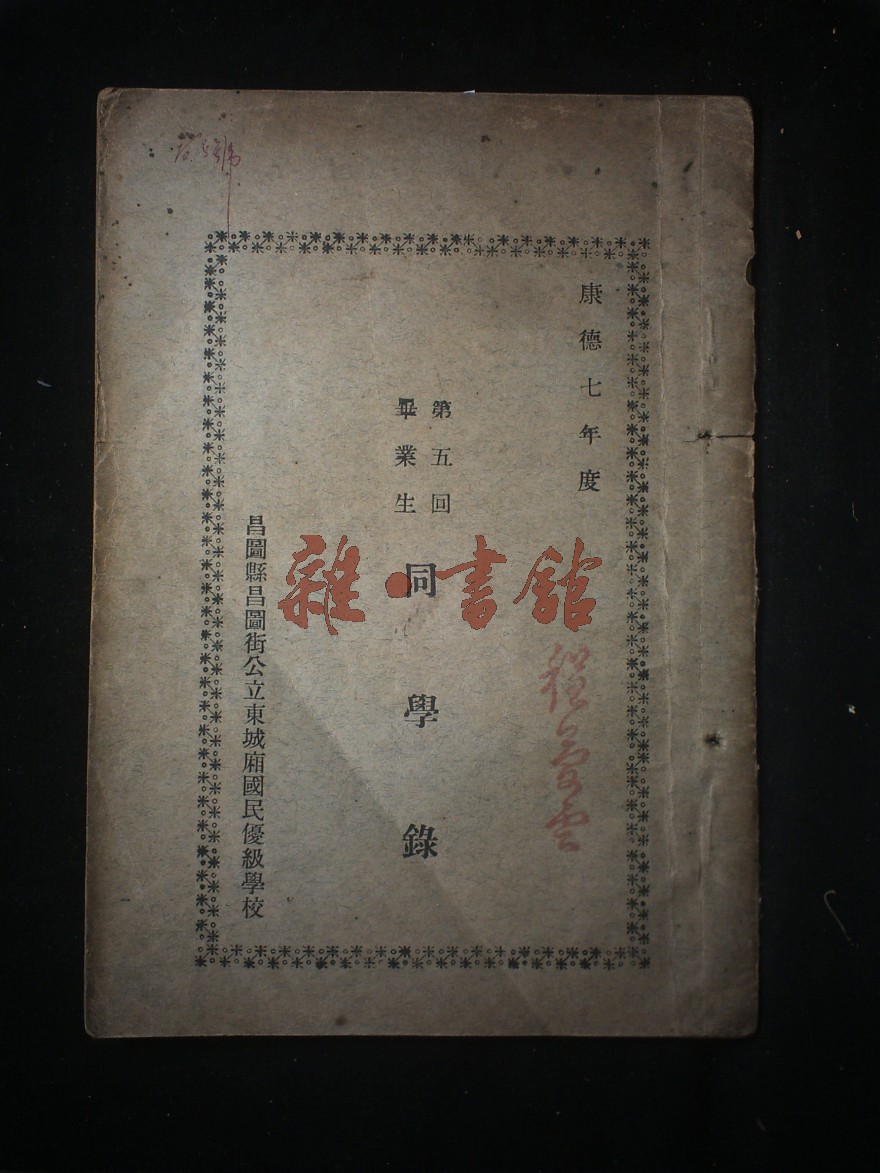 康德七年度
第五回
畢業生
同學錄
昌圖縣昌圖街公立東城廂國民優級學校
雜·書館